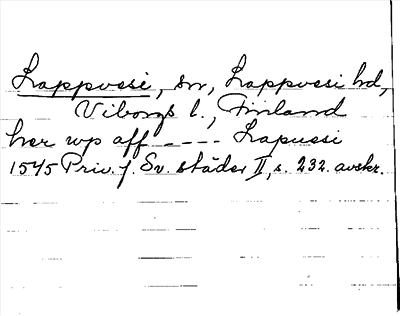 Lappvesi, sn, Lappvesi hd,
Viborgs l., Finland
her wp aff - - - - Lapuesi
1545 Priv. f. Sv. städer II, s. 232. avskr.